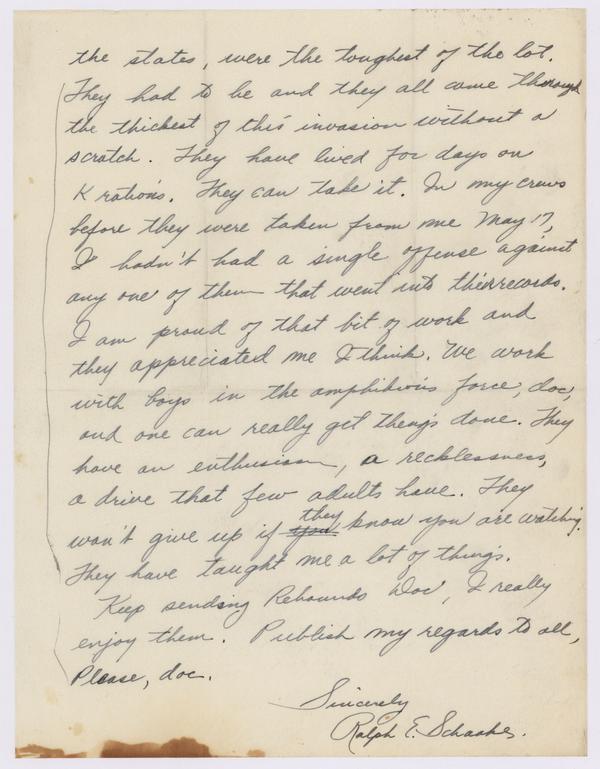 the states, were the toughest of the lot.
They had to be and they all came through
the thickest of this invasion without a
scratch. They have lived for days on
K rations. They can take it. In my crews
before they were taken from me May 17,
I hadn't had a single offense against
any one of them that went into their records.
I am proud of that bit of work and
they appreciated me I think. We work
with boys in the amphibious force, doc,
and one can really get things done. They
have an enthusiasm, a recklessness,
a drive that few adults have. They
won't give up if they know you are watching.
They have taught me a lot of things.
Keep sending Rebounds Doc, I really
enjoy them. Publish my regards to all,
Please, doc.
Sincerely
Ralph E. Schaake.